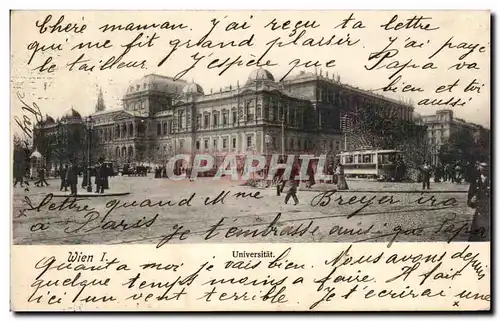 Chère maman. J'ai reçu ta lettre
qui me fit grand plaisir. J'ai payé
le tailleur. J'espère que Papa va
bien et toi
aussi?
lettre quand Me Breyer ira
à Paris Je t'embrasse ainsi que Papa
Wien I. Universität.
Quant à moi je vais bien. Nous avons depuis
quelque temps à faire. Il fait
ici un vent terrible. Je t'écrirai une
CPARAMA